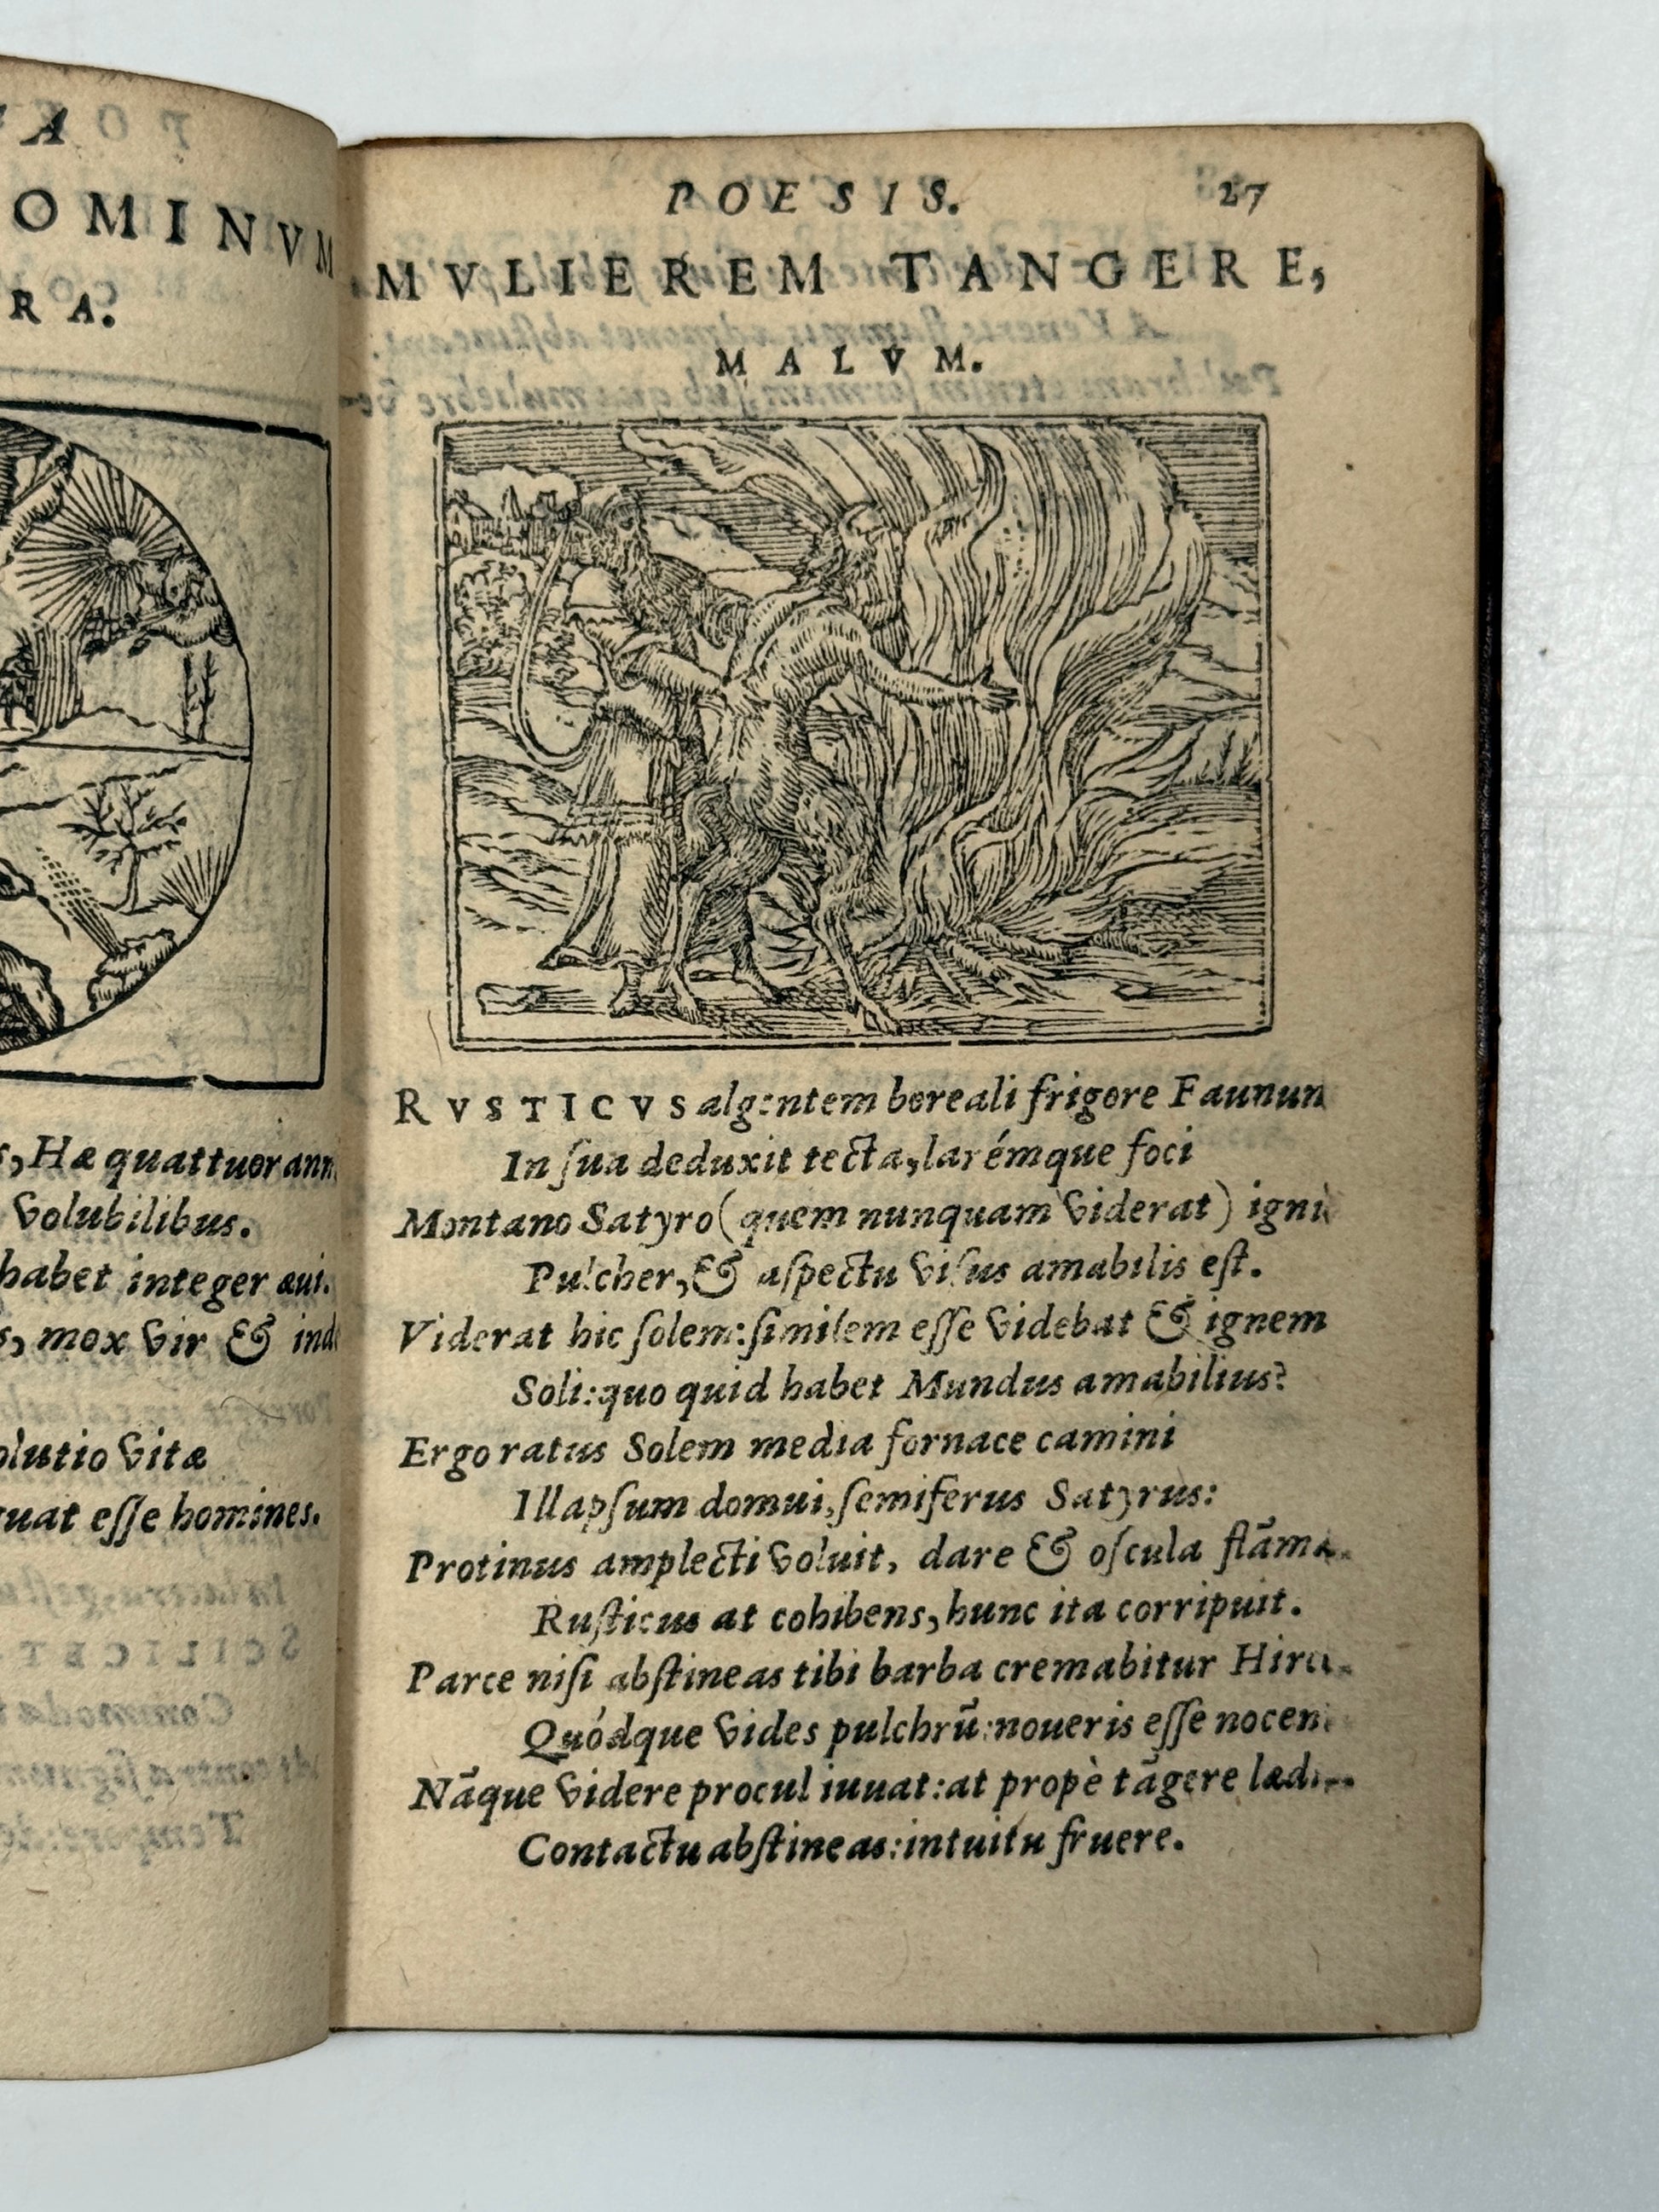 OMINVM
RA.
Hæ quattuor
volubilibus.
habet integer æui.
mox vir & 
vitæ
eſſe homines.
POESIS. 27
MVLIEREM TANGERE,
MALVM.
RVSTICVS algentem boreali frigore Faunum
In ſua deduxit tecta, larémque foci
Montano Satyro (quem nunquam viderat) ignis
Pulcher, & aſpectu viſus amabilis eſt.
Viderat hic ſolem: ſimilem eſſe videbat & ignem
Soli: quo quid habet Mundus amabilius?
Ergo ratus Solem media fornace camini
Illapſum domui, ſemiferus Satyrus:
Protinus amplecti voluit, dare & oſcula
Ruſticus at cohibens, hunc ita corripuit.
Parce niſi abſtineas tibi barba cremabitur
Quódque vides pulchrū: noueris eſſe
Nāque videre procul iuuat: at propè tāgere
Contactu abſtineas: intuitu fruere.